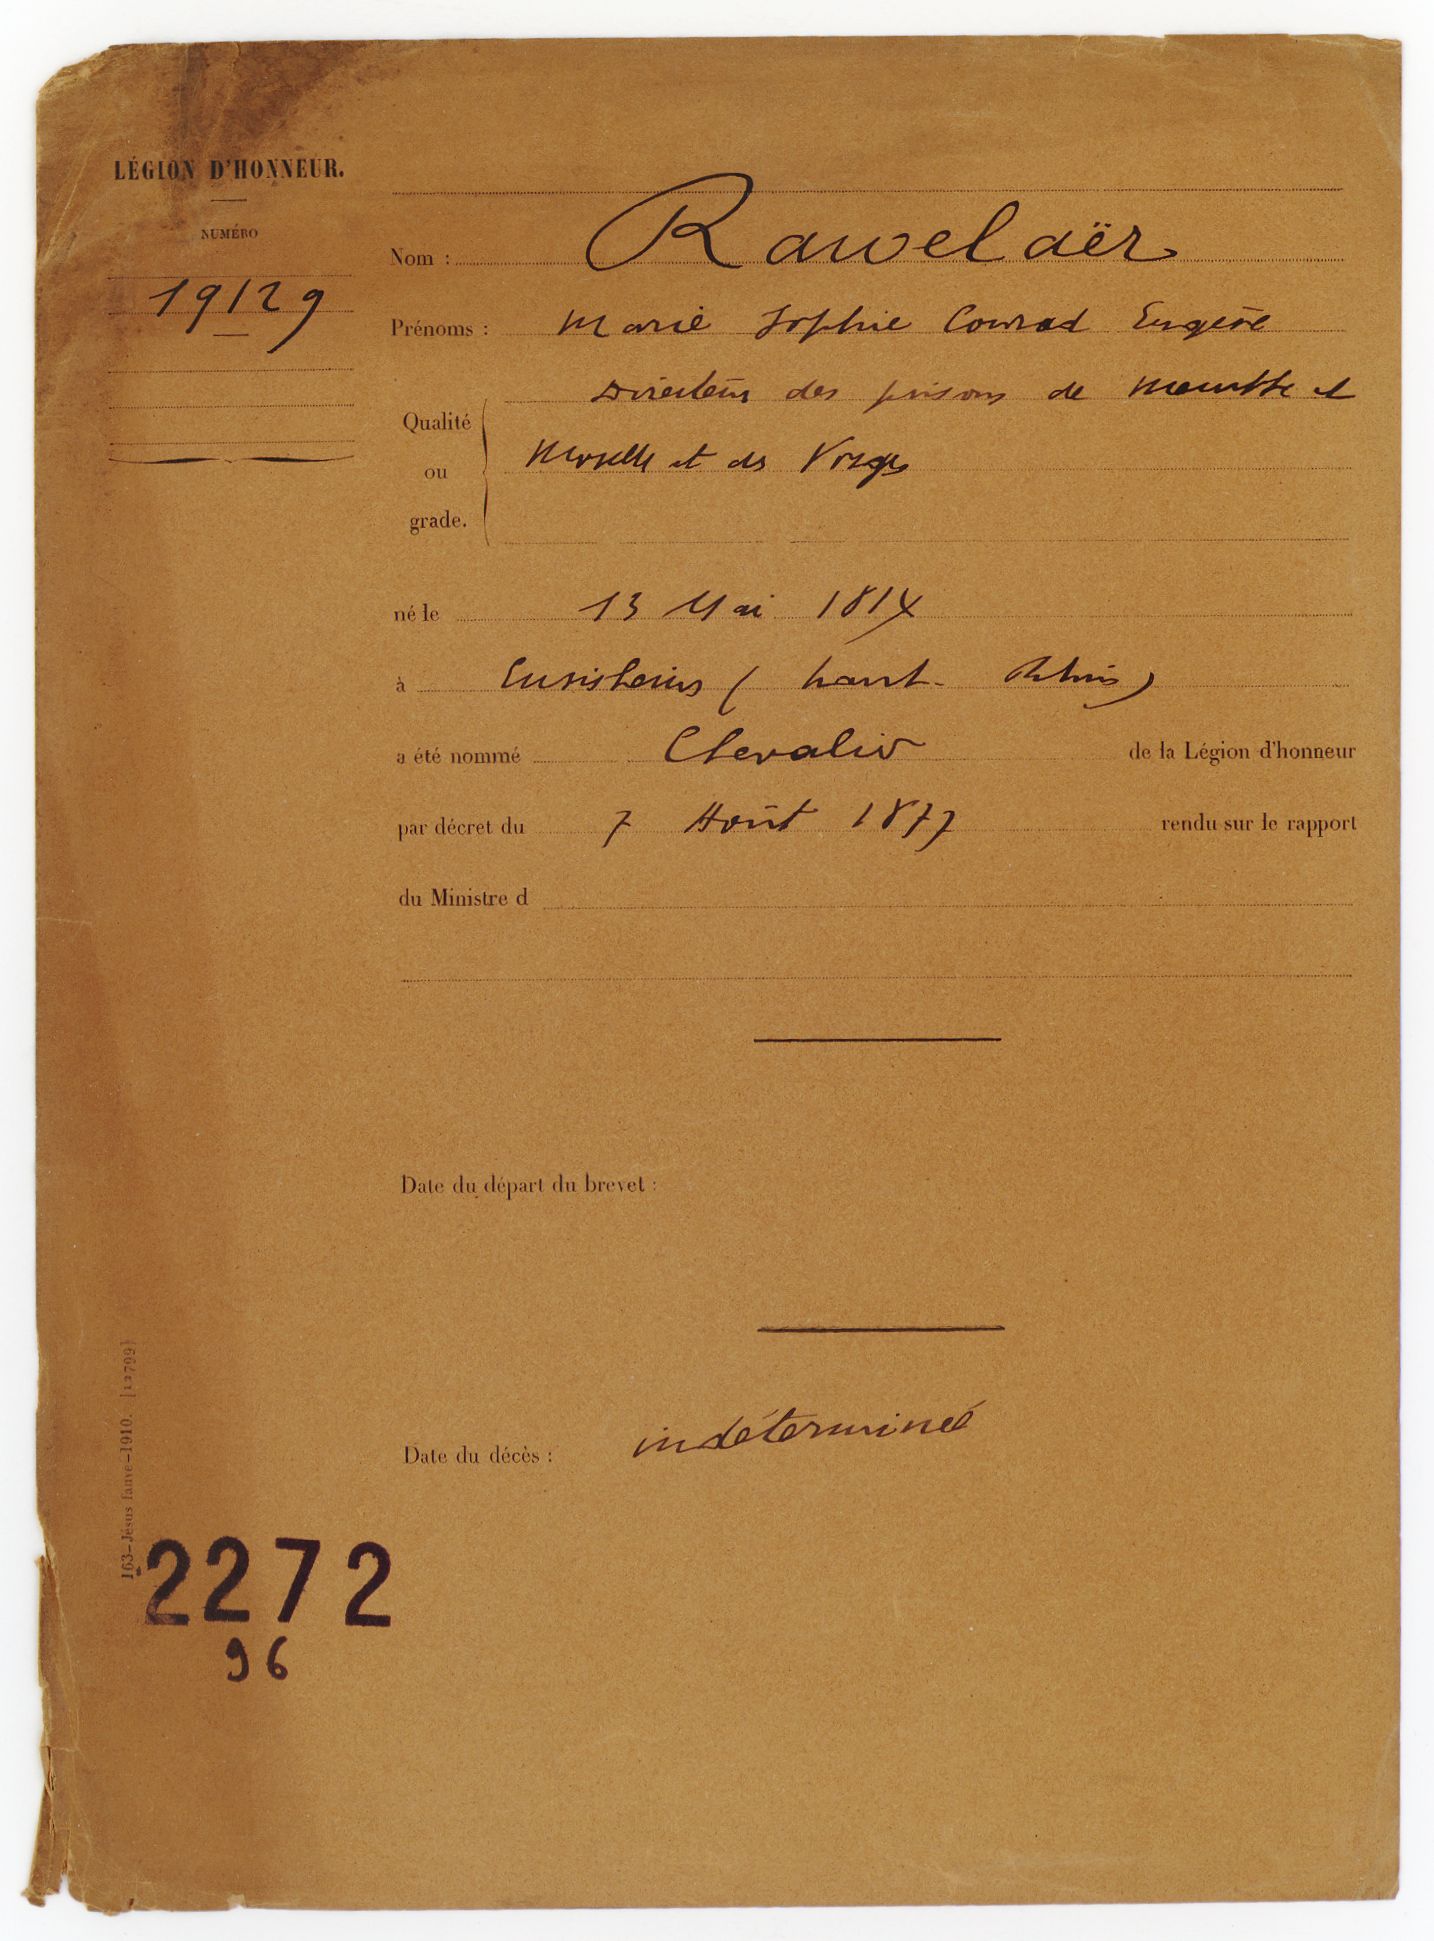 LÉGION D'HONNEUR.
NUMÉRO
19129
Nom : Rawelaër
Prénoms : Marie Sophie Conrad Eugène
Qualité ou grade. Directeur des prisons de Meurthe et
Moselle et des Vosges
né le 13 Mai 1814
à Ensisheim (haut-Rhin)
a été nommé Chevalier de la Légion d'honneur
par décret du 7 Août 1877 rendu sur le rapport
du Ministre d
Date du départ du brevet :
Date du décès : indéterminée
163-Jésus fauve-1910. [12799]
2272
96